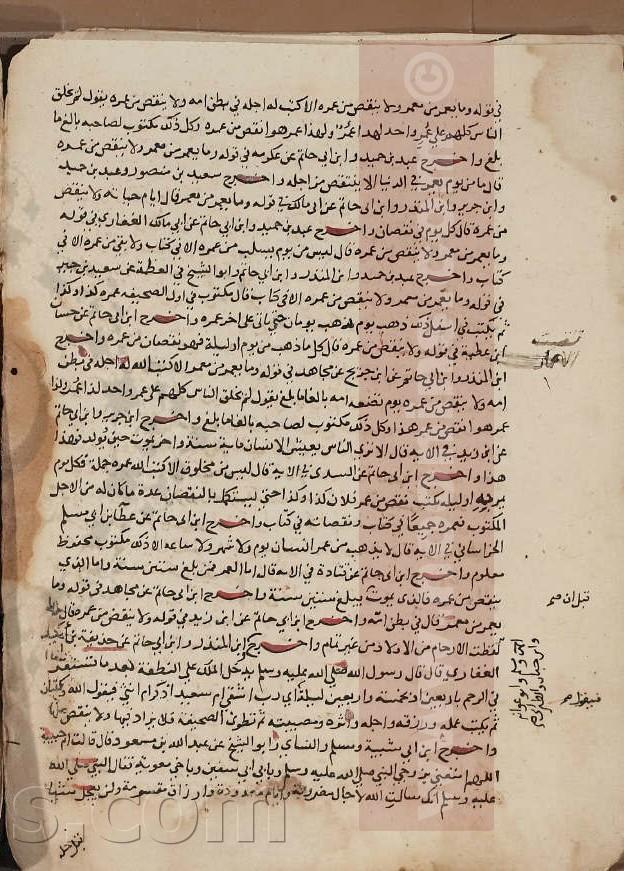 في قوله وما يعمر من معمر ولا ينقص من عمره الا كتب له اجله في بطن امه ولا ينقص من عمره يقول لم يخلق
الناس كلهم على عمر واحد لهذا عمر ولهذا عمر هو انقص من عمره وكل ذلك مكتوب لصاحبه بالغ ما
بلغ واخرج عبد بن حميد وابن ابي حاتم عن عكرمه في قوله وما يعمر من معمر ولا ينقص من عمره
قال ما من يوم يعمر في الدنيا الا ينتقص من اجله واخرج سعيد بن منصور وعبد بن حميد
وابن جرير وابن المنذر وابن ابي حاتم عن ابي مالك في قوله وما يعمر من معمر قال ايام حياته ولا ينقص
من عمره قال كل يوم في نقصان واخرج عبد بن حميد وابن ابي حاتم عن ابي مالك الغفاري في قوله
وما يعمر من معمر ولا ينقص من عمره قال ليس من يوم يسلب من عمره الا في كتاب ولا يبقى من عمره الا في
كتاب واخرج عبد بن حميد وابن المنذر وابن ابي حاتم وابو الشيخ في العظمة عن سعيد بن جبير
في قوله وما يعمر من معمر ولا ينقص من عمره الا في كتاب قال مكتوب في اول الصحيفه عمره كذا وكذا
ثم يكتب في اسفل ذلك ذهب يوم ذهب يومان حتى ياتي على اخر عمره واخرج ابن ابي حاتم عن حسان
ابن عطية في قوله ولا ينقص من عمره قال كل ما ذهب من يوم او ليلة فهو نقصان من عمره واخرج
ابن المنذر وابن ابي حاتم عن ابن جريج عن مجاهد في قوله وما يعمر من معمر الا كتب الله له اجله في بطن
امه ولا ينقص من عمره يوم تضعه امه بالغا ما بلغ يقول لم يخلق الناس كلهم على عمر واحد لذا عمر ولذا
عمر هو انقص من عمر هذا وكل ذلك مكتوب لصاحبه بالغا ما بلغ واخرج ابن جرير وابن ابي حاتم
عن ابن زيد في الايه قال الا ترى الناس يعيش الانسان ماية سنة واخر يموت حين يولد فهذا
هذا واخرج ابن ابي حاتم عن السدي في الايه قال ليس من مخلوق الا كتب الله عمره جملة فكل يوم
يمر به او ليلة يكتب نقص من عمر فلان كذا وكذا حتى يستكمل بالنقصان عدة ما كان له من الاجل
المكتوب فعمره جميعا في كتاب ونقصانه في كتاب واخرج ابن ابي حاتم عن عطا بن ابي مسلم
الخراساني في الايه قال لا يذهب من عمر انسان يوم ولا شهر ولا ساعه الا ذلك مكتوب محفوظ
معلوم واخرج ابن ابي حاتم عن قتادة في الايه قال اما العمر فمن بلغ ستين سنة واما الذي
ينقص من عمره فالذي يموت يبلغ ستين سنة واخرج ابن ابي حاتم عن مجاهد في قوله وما
يعمر من معمر قال في بطن امه واخرج ابن ابي حاتم عن ابن زيد في قوله ولا ينقص من عمره قال ما
لفظت الارحام من الاولاد من غير تمام واخرج ابن المنذر وابن ابي حاتم عن حذيفة بن اسيد
الغفاري قال قال رسول الله صلى الله عليه وسلم يدخل الملك على النطفة بعد ما تستقر
في الرحم باربعين او بخمسة واربعين ليلة اي رب اشقي ام سعيد اذكر ام انثى فيقول الله ويكتبان
ثم يكتب عمله ورزقه واجله واثره ومصيبته ثم تطوى الصحيفة فلا يزاد فيها ولا ينقص
واخرج ابن ابي شيبة ومسلم والنساي وابو الشيخ عن عبد الله بن مسعود قال قالت ام حبيبة
اللهم امتعني بزوجي النبي صلى الله عليه وسلم وبابي ابي سفين وباخي معوية فقال النبي صلى الله
عليه وسلم انك سالت الله لاجال مضروبة وايام معدودة وارزاق مقسومة ولن يعجل شيئا
قبل حله
قبل ان صح
فيقولا صح
s.com